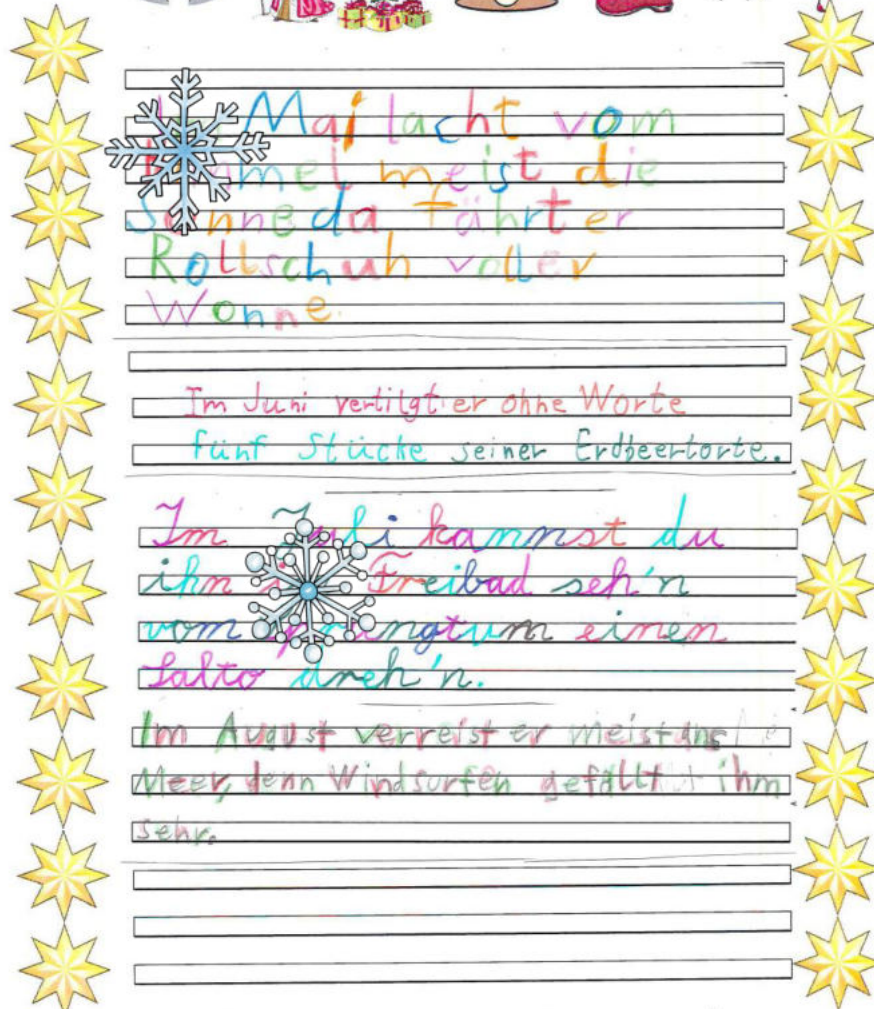 Mai lacht vom
meist die
Sonne da fährt er
Rollschuh voller
Wonne.
Im Juni vertilgt er ohne Worte
fünf Stücke seiner Erdbeertorte.
Im Juli kannst du
ihn Freibad seh'n
vom einen
Salto dreh'n.
Im August verreist er meist ans
Meer, denn Windsurfen gefällt ihm
sehr.